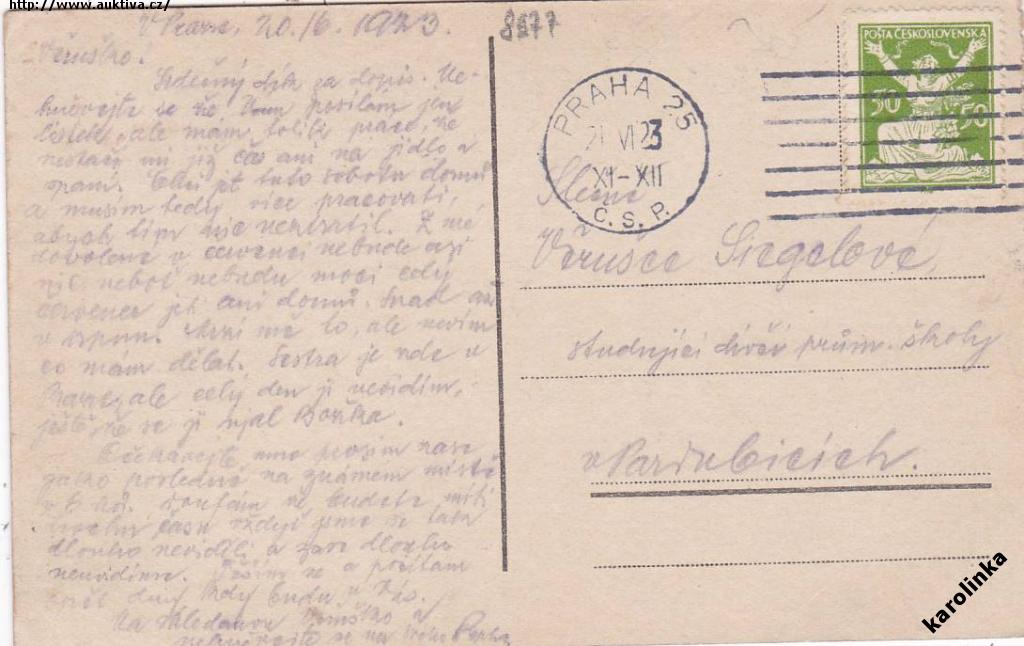 http://www.auktiva.cz/
V Praze, 20./6. 1923.
Věruško!
Srdečný dík za dopis. Ne-
hněvejte se že Vám posílám jen
lístek, ale mám tolik práce, že
nestačí mi již čas ani na jídlo a
spaní. Chci jet tuto sobotu domů
a musím tedy více pracovati,
abych tím nic neztratil. Z mé
dovolené v červenci nebude asi
nic, neboť nebudu moci celý
červenec jet ani domů. Snad až
v srpnu. Mrzí mě to, ale nevím
co mám dělat. Sestra je zde v
Praze, ale celý den ji nevidím,
ještě, že se jí ujal
Očekávejte mne prosím
posledně na známém místě
v 5 hod. Doufám že budete míti
času vždyť jsme se tak
dlouho neviděli a zase dlouho
neuvidíme. Těším se a počítám
opět dny kdy budu u Vás.
Na shledanou Věruško a
nehněvejte se na
8577
POŠTA ČESKOSLOVENSKA
50 50
PRAHA 25
21 VI 23
XI-XII
Č.S.P.
Slečna
Věrušce Siegelové,
studující dívčí prům. školy
v Pardubicích.
karolinka